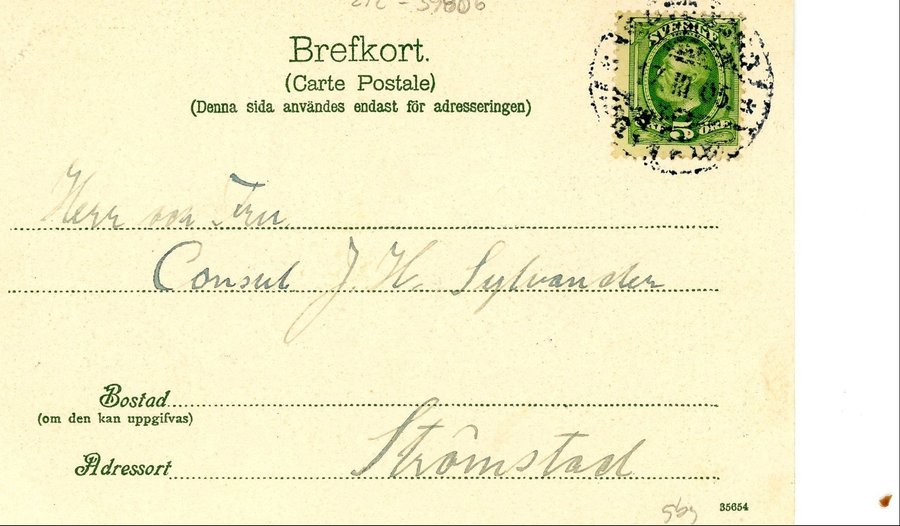 Brefkort.
(Carte Postale)
(Denna sida användes endast för adresseringen)
SVERIGE
5
Herr och Fru
Consul J. H. Sylvander
Bostad
(om den kan uppgifvas)
Strömstad
Adressort
35654